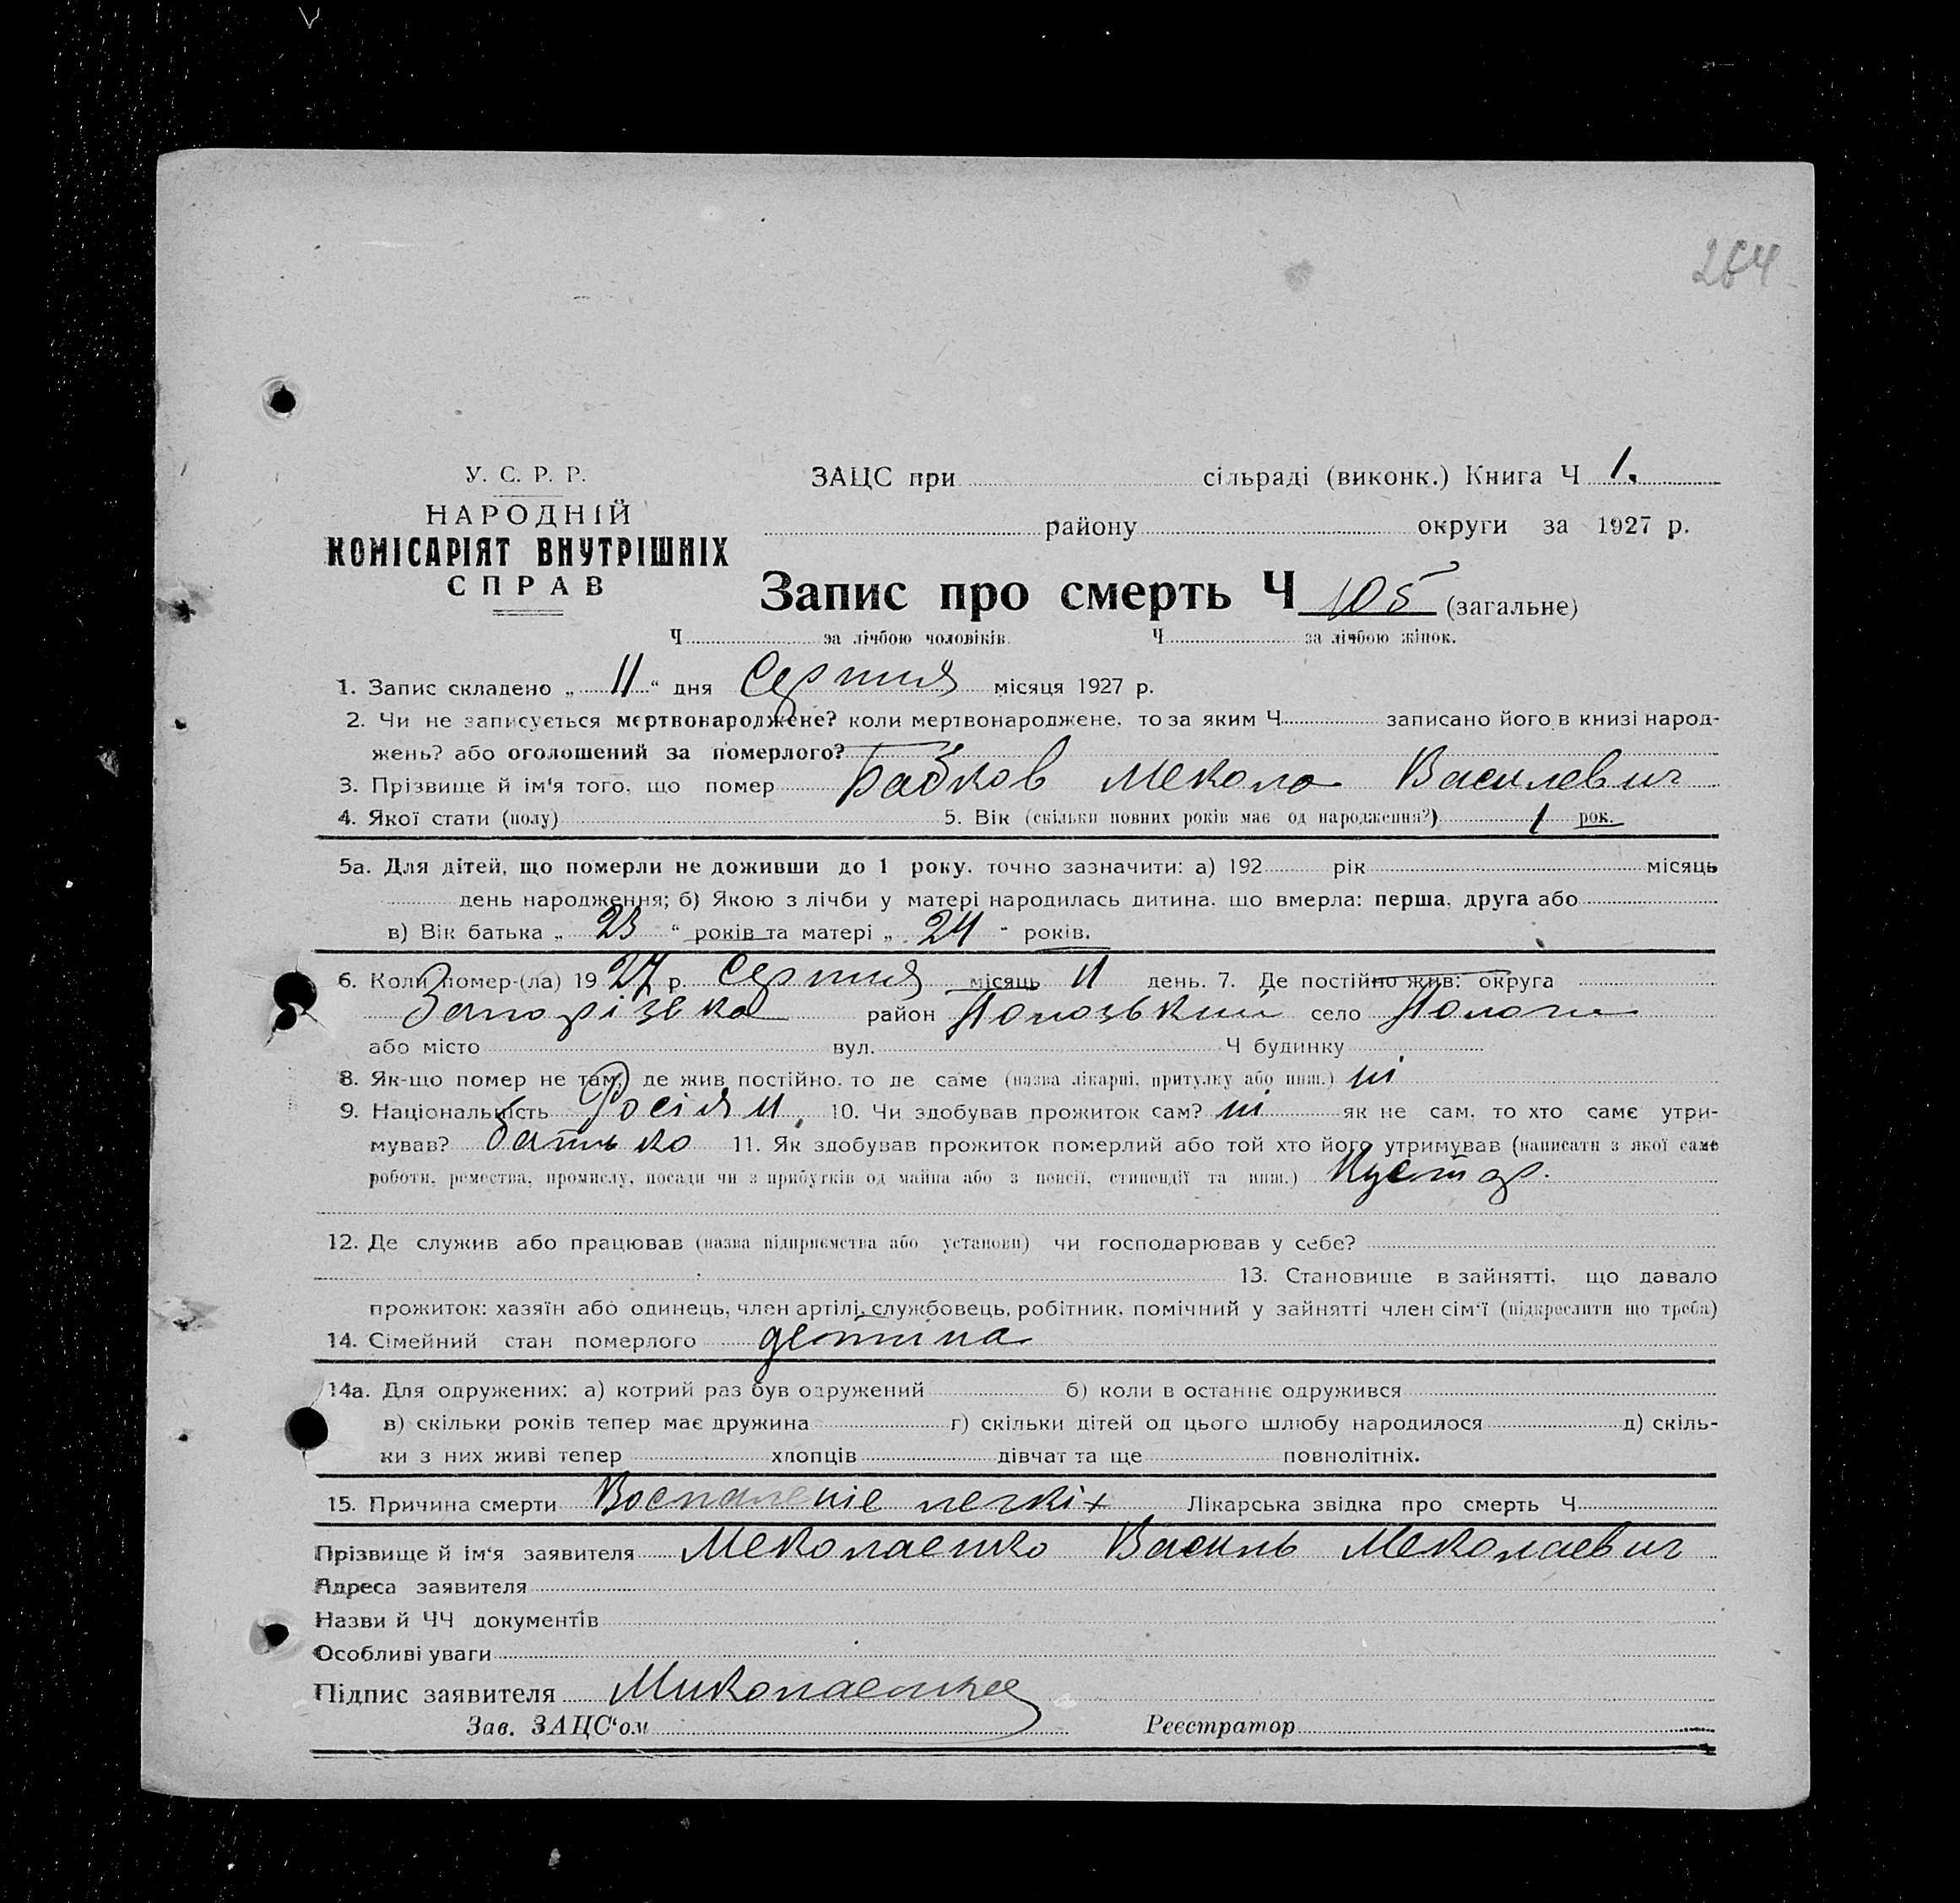 264
У. С. Р. Р.
НАРОДНІЙ
КОМІСАРІЯТ ВНУТРІШНІХ
СПРАВ
ЗАЦС при сільраді (виконк.) Книга Ч 1.
району округи за 1927 р.
Запис про смерть Ч 105 (загальне)
Ч за лічбою чоловіків. Ч за лічбою жінок.
1. Запис складено „ 11 “ дня Серпня місяця 1927 р.
2. Чи не записується мертвонароджене? коли мертвонароджене, то за яким Ч записано його в книзі народ-
жень? або оголошений за померлого?
3. Прізвище й ім'я того, що помер Бабков Мекола Василевич
4. Якої стати (полу) 5. Вік (скільки повних років має од народження?) 1 рок.
5а. Для дітей, що померли не доживши до 1 року, точно зазначити: а) 192 рік місяць
день народження; б) Якою з лічби у матері народилась дитина, що вмерла: перша, друга або
в) Вік батька „ 23 “ років та матері „ 24 “ років.
6. Коли помер-(ла) 1927 р. Серпня місяць 11 день. 7. Де постійно жив: округа
Запорізька район Пологський село Пологи
або місто вул. Ч будинку
8. Як-що помер не там, де жив постійно, то де саме (назва лікарні, притулку або инш.) ні
9. Національність Росіян 10. Чи здобував прожиток сам? ні як не сам, то хто саме утри-
мував? батько 11. Як здобував прожиток померлий або той хто його утримував (написати з якої саме
роботи, ремества, промислу, посади чи з прибутків од майна або з пенсії, стипендії та инш.) Кустар.
12. Де служив або працював (назва підприємства або установи) чи господарював у себе?
13. Становище в зайнятті, що давало
прожиток: хазяїн або одинець, член артілі, службовець, робітник, помічний у зайнятті член сім'ї (підкреслити що треба)
14. Сімейний стан померлого детина
14а. Для одружених: а) котрий раз був одружений б) коли в останнє одружився
в) скільки років тепер має дружина г) скільки дітей од цього шлюбу народилося д) скіль-
ки з них живі тепер хлопців дівчат та ще повнолітніх.
15. Причина смерти Воспаленіе легкіх Лікарська звідка про смерть Ч
Прізвище й ім'я заявителя Меколаенко Василь Меколаевич
Адреса заявителя
Назви й ЧЧ документів
Особливі уваги
Підпис заявителя Миколаенко
Зав. ЗАЦС'ом Реєстратор